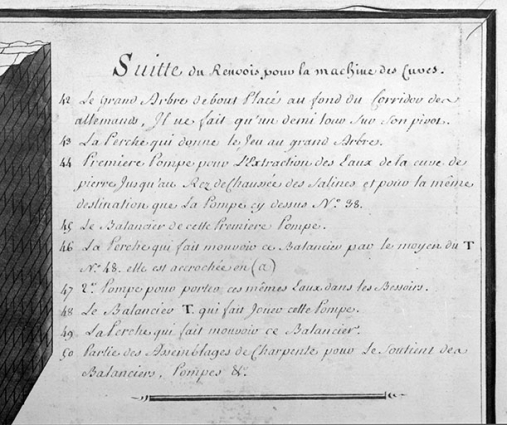 Suitte du Renvois pour la machine des Cuves.
42 Le Grand Arbre debout Placé au fond du Corridor des
allemands, Il ne fait qu'un demi tour Sur Son pivot.
43 La Perche qui donne le Jeu au grand Arbres.
44 Premiere Pompe pour L'Extraction des Eaux de la cuve de
pierre Jusqu'au Rez de Chaussée des Salines et pour la même
destination que La Pompe cy dessus N.º 38.
45 Le Balancier de cette Premiere Pompe.
46 La Perche qui fait mouvoir ce Balancier par le moyen du T
N.º 48. elle est accrochée en (a)
47 2.e Pompe pour porter ces mêmes Eaux dans les Bessoirs.
48 Le Balancier T. qui fait Jouer cette Pompe.
49 La Perche qui fait mouvoir ce Balancier.
50 Partie des Assemblages de Charpente pour le Soutient des
Balanciers, Pompes &c.